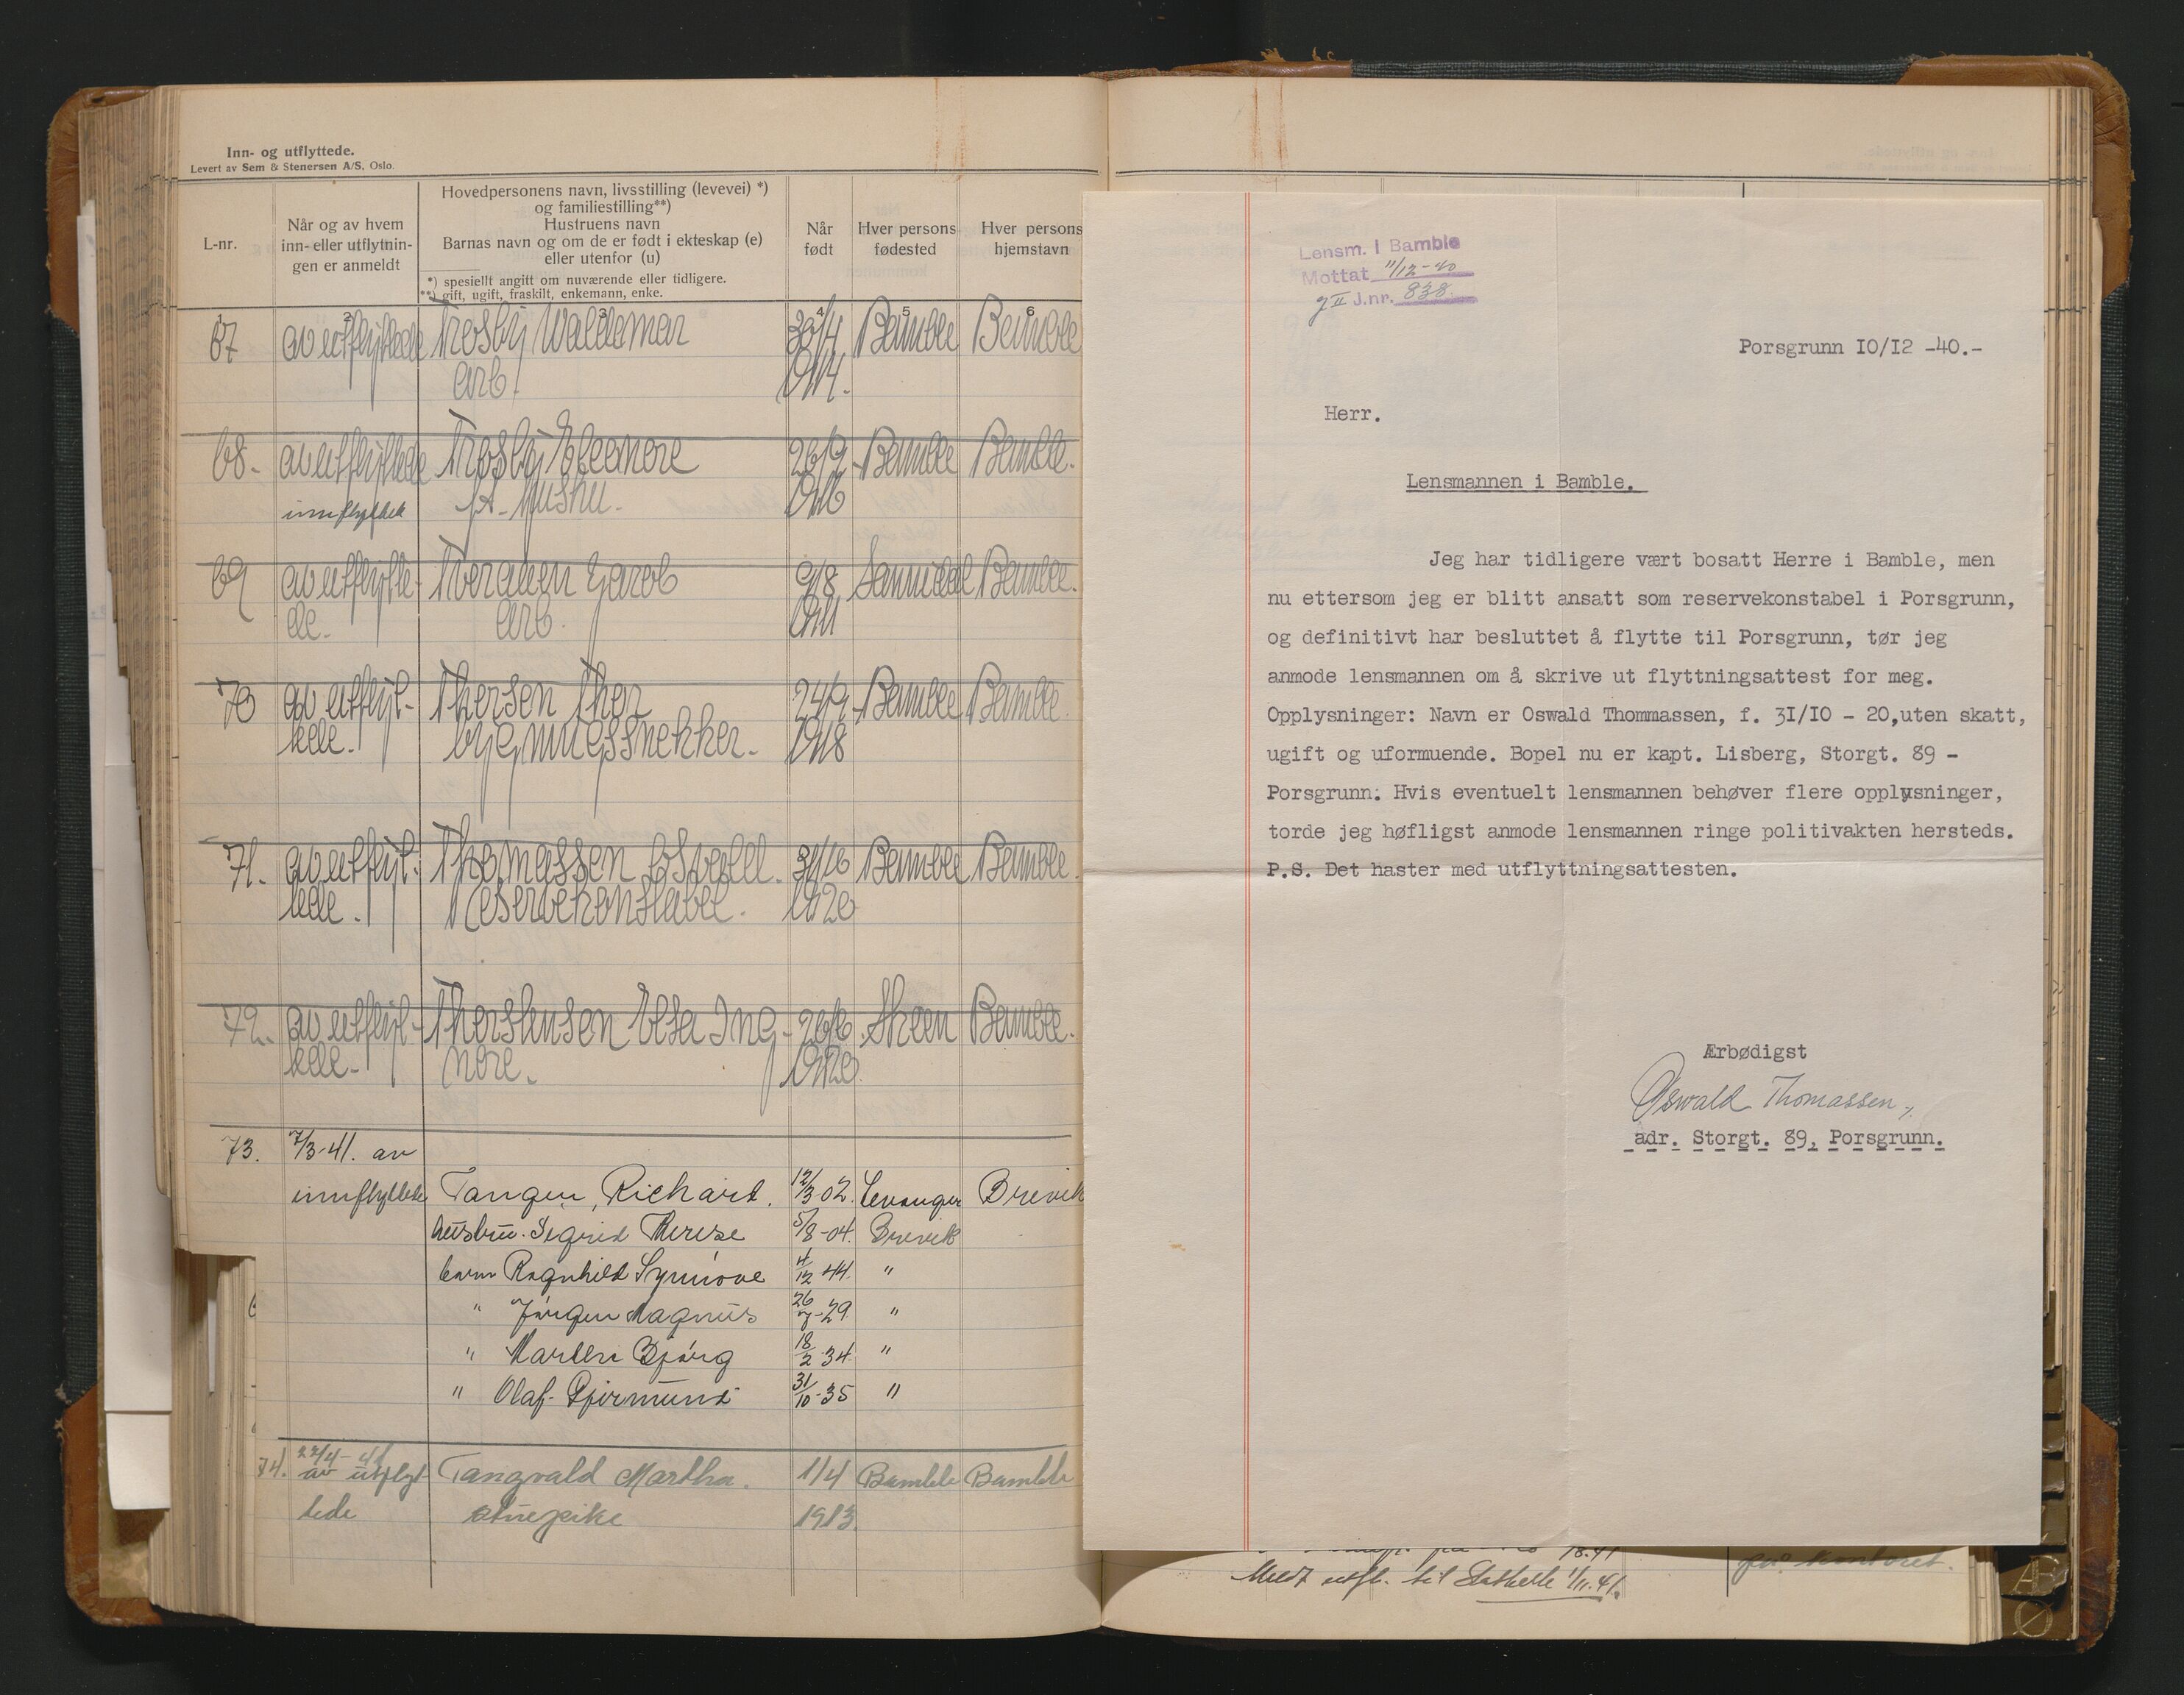 Inn- og utflyttede.
Levert av Sem & Stenersen A/S, Oslo.
L-nr.
Når og av hvem
inn- eller utflytnin-
gen er anmeldt
Hovedpersonens navn, livsstilling (levevei) *)
og familiestilling**)
Hustruens navn
Barnas navn og om de er født i ekteskap (e)
eller utenfor (u)
*) spesielt angitt om nuværende eller tidligere.
**) gift, ugift, fraskilt, enkemann, enke.
Når
født
Hver persons
fødested
Hver persons
hjemstavn
1 2 3 4 5 6
67 av utflyttede Trosby Waldemar 30/4 Bamble Bamble
arb. 1914.
68. av utflyttede Trosby Eleonore 26/9 Bamble Bamble.
innflyttet 1916
69 av utflytte- Tveraaen Jacob 9/8 Sannidal Bamble.
de. arb. 1911
70 av utflyt- Thorsen Thor 24/9 Bamble Bamble.
tede. bygningssnekker. 1918
71. av utflyt- Thomassen Osvald. 31/10 Bamble Bamble.
tede. reservekonstabel. 1920
72. av utflyt- Thorstensen Elsa Ing- 26/6 Skien Bamble.
tede. nore. 1920
73. 7/3-41. av
innflyttede Tangen, Richard. 12/3-02. Levanger Brevik
hustru. Sigrid Therese 5/8-04. Brevik
barn Ragnhild Synnøve 4/12 44. "
" Jørgen Magnus 26/7-29 "
" Marthe Bjørg 18/2 34. "
" Olaf Gjermund 31/10-35 "
74. 22/4-41
av utflyt- Tangvald Martha. 1/4 Bamble Bamble
tede stuepike 1913.
Lensm. i Bamble
Mottat 11/12-40
J II J.nr. 838.
Porsgrunn IO/I2 -40.-
Herr.
Lensmannen i Bamble.
Jeg har tidligere vært bosatt Herre i Bamble, men
nu ettersom jeg er blitt ansatt som reservekonstabel i Porsgrunn,
og definitivt har besluttet å flytte til Porsgrunn, tør jeg
anmode lensmannen om å skrive ut flyttningsattest for meg.
Opplysninger: Navn er Oswald Thommassen, f. 3I/IO - 20,uten skatt,
ugift og uformuende. Bopel nu er kapt. Lisberg, Storgt. 89 -
Porsgrunn. Hvis eventuelt lensmannen behøver flere opplysninger,
torde jeg høfligst anmode lensmannen ringe politivakten hersteds.
P.S. Det haster med utflyttningsattesten.
Ærbødigst
Oswald Thomassen,
adr. Storgt. 89, Porsgrunn.
18.41
Meldt utfl. til Stathelle 1/11.41.
kontoret.
Æ
Ø